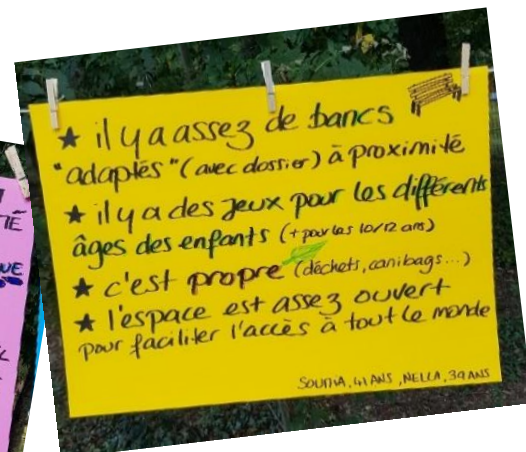 ★ il y a assez de bancs
"adaptés" (avec dossier) à proximité
★ il y a des jeux pour les différents
âges des enfants (+ pour les 10/12 ans)
★ c'est propre (déchets, canibags...)
★ l'espace est assez ouvert
pour faciliter l'accès à tout le monde
SOUMIA, 41 ANS, NELLA, 39 ANS
TÉ
UE